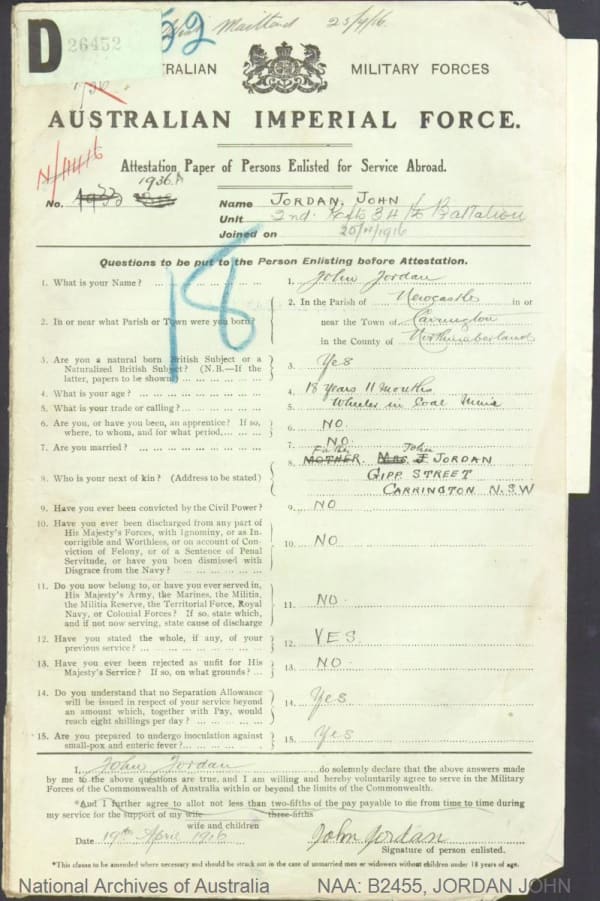 D 26452
Maitland 25/4/16.
AUSTRALIAN MILITARY FORCES
AUSTRALIAN IMPERIAL FORCE.
Attestation Paper of Persons Enlisted for Service Abroad.
1936A
No.
Name JORDAN, JOHN
Unit 2nd Rfts 34th Battalion
Joined on
18
Questions to be put to the Person Enlisting before Attestation.
1. What is your Name? 1. John Jordan
2. In or near what Parish or Town were you born? 2. In the Parish of Newcastle in or
near the Town of Carrington
in the County of Northumberland
3. Are you a natural born British Subject or a
Naturalized British Subject? (N.B.—If the
latter, papers to be shown) 3. Yes
4. What is your age? 4. 18 years 11 months
5. What is your trade or calling? 5. Wheeler in Coal Mine
6. Are you, or have you been, an apprentice? If so,
where, to whom, and for what period 6. NO.
7. Are you married? 7. NO.
Father John
8. Who is your next of kin? (Address to be stated) 8. MOTHER. MRS J JORDAN
GIPP STREET
CARRINGTON N.S.W
9. Have you ever been convicted by the Civil Power? 9. NO
10. Have you ever been discharged from any part of
His Majesty's Forces, with Ignominy, or as In-
corrigible and Worthless, or on account of Con-
viction of Felony, or of a Sentence of Penal
Servitude, or have you been dismissed with
Disgrace from the Navy? 10. NO.
11. Do you now belong to, or have you ever served in,
His Majesty's Army, the Marines, the Militia,
the Militia Reserve, the Territorial Force, Royal
Navy, or Colonial Forces? If so, state which,
and if not now serving, state cause of discharge 11. NO.
12. Have you stated the whole, if any, of your
previous service? 12. YES.
13. Have you ever been rejected as unfit for His
Majesty's Service? If so, on what grounds? 13. NO.
14. Do you understand that no Separation Allowance
will be issued in respect of your service beyond
an amount which, together with Pay, would
reach eight shillings per day? 14. Yes
15. Are you prepared to undergo inoculation against
small-pox and enteric fever? 15. Yes
I, John Jordan do solemnly declare that the above answers made
by me to the above questions are true, and I am willing and hereby voluntarily agree to serve in the Military
Forces of the Commonwealth of Australia within or beyond the limits of the Commonwealth.
*And I further agree to allot not less than two-fifths of the pay payable to me from time to time during
three-fifths
my service for the support of my wife
wife and children
Date 19th April 1916 John Jordan
Signature of person enlisted.
*This clause to be amended where necessary and should be struck out in the case of unmarried men or widowers without children under 18 years of age.
National Archives of Australia NAA: B2455, JORDAN JOHN